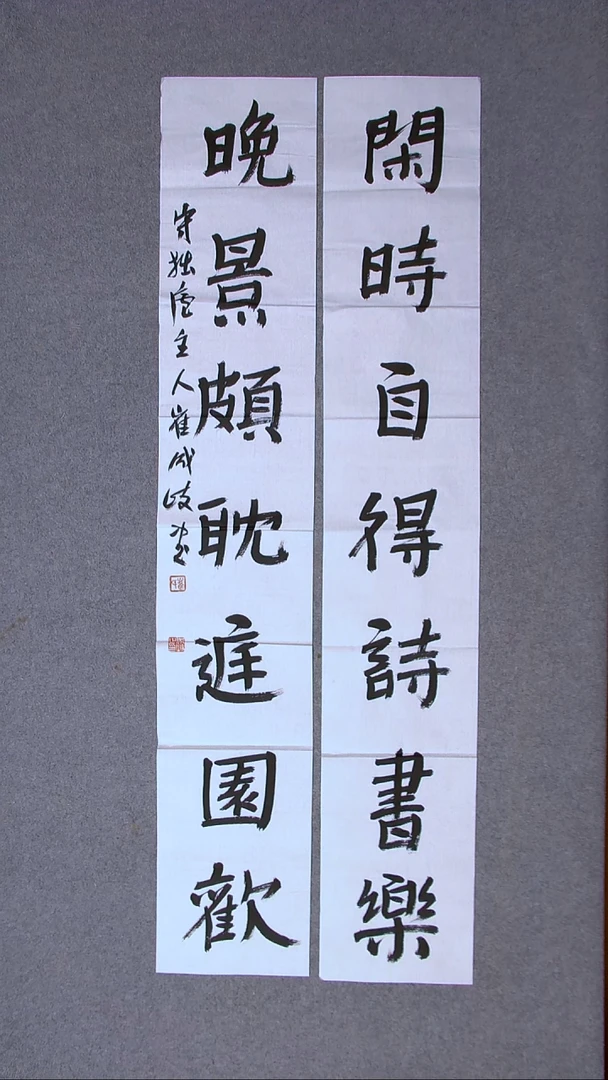 閑時自得詩書樂
晚景頗耽庭園歡
守拙廬主人崔成岐書